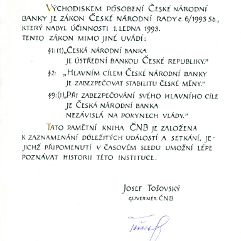 Východiskem působení České národní
banky je zákon České národní rady č. 6/1993 Sb.,
který nabyl účinnosti 1. ledna 1993.
Tento zákon mimo jiné uvádí:
§1:(1) „Česká národní banka
je ústřední bankou České republiky."
§2: „Hlavním cílem České národní banky
je zabezpečovat stabilitu české měny."
§9:(1) „Při zabezpečování svého hlavního cíle
je Česká národní banka
nezávislá na pokynech vlády."
Tato pamětní kniha ČNB je založena
k zaznamenání důležitých událostí a setkání, je-
jichž připomenutí v časovém sledu umožní lépe
poznávat historii této instituce.
Josef Tošovský
guvernér ČNB